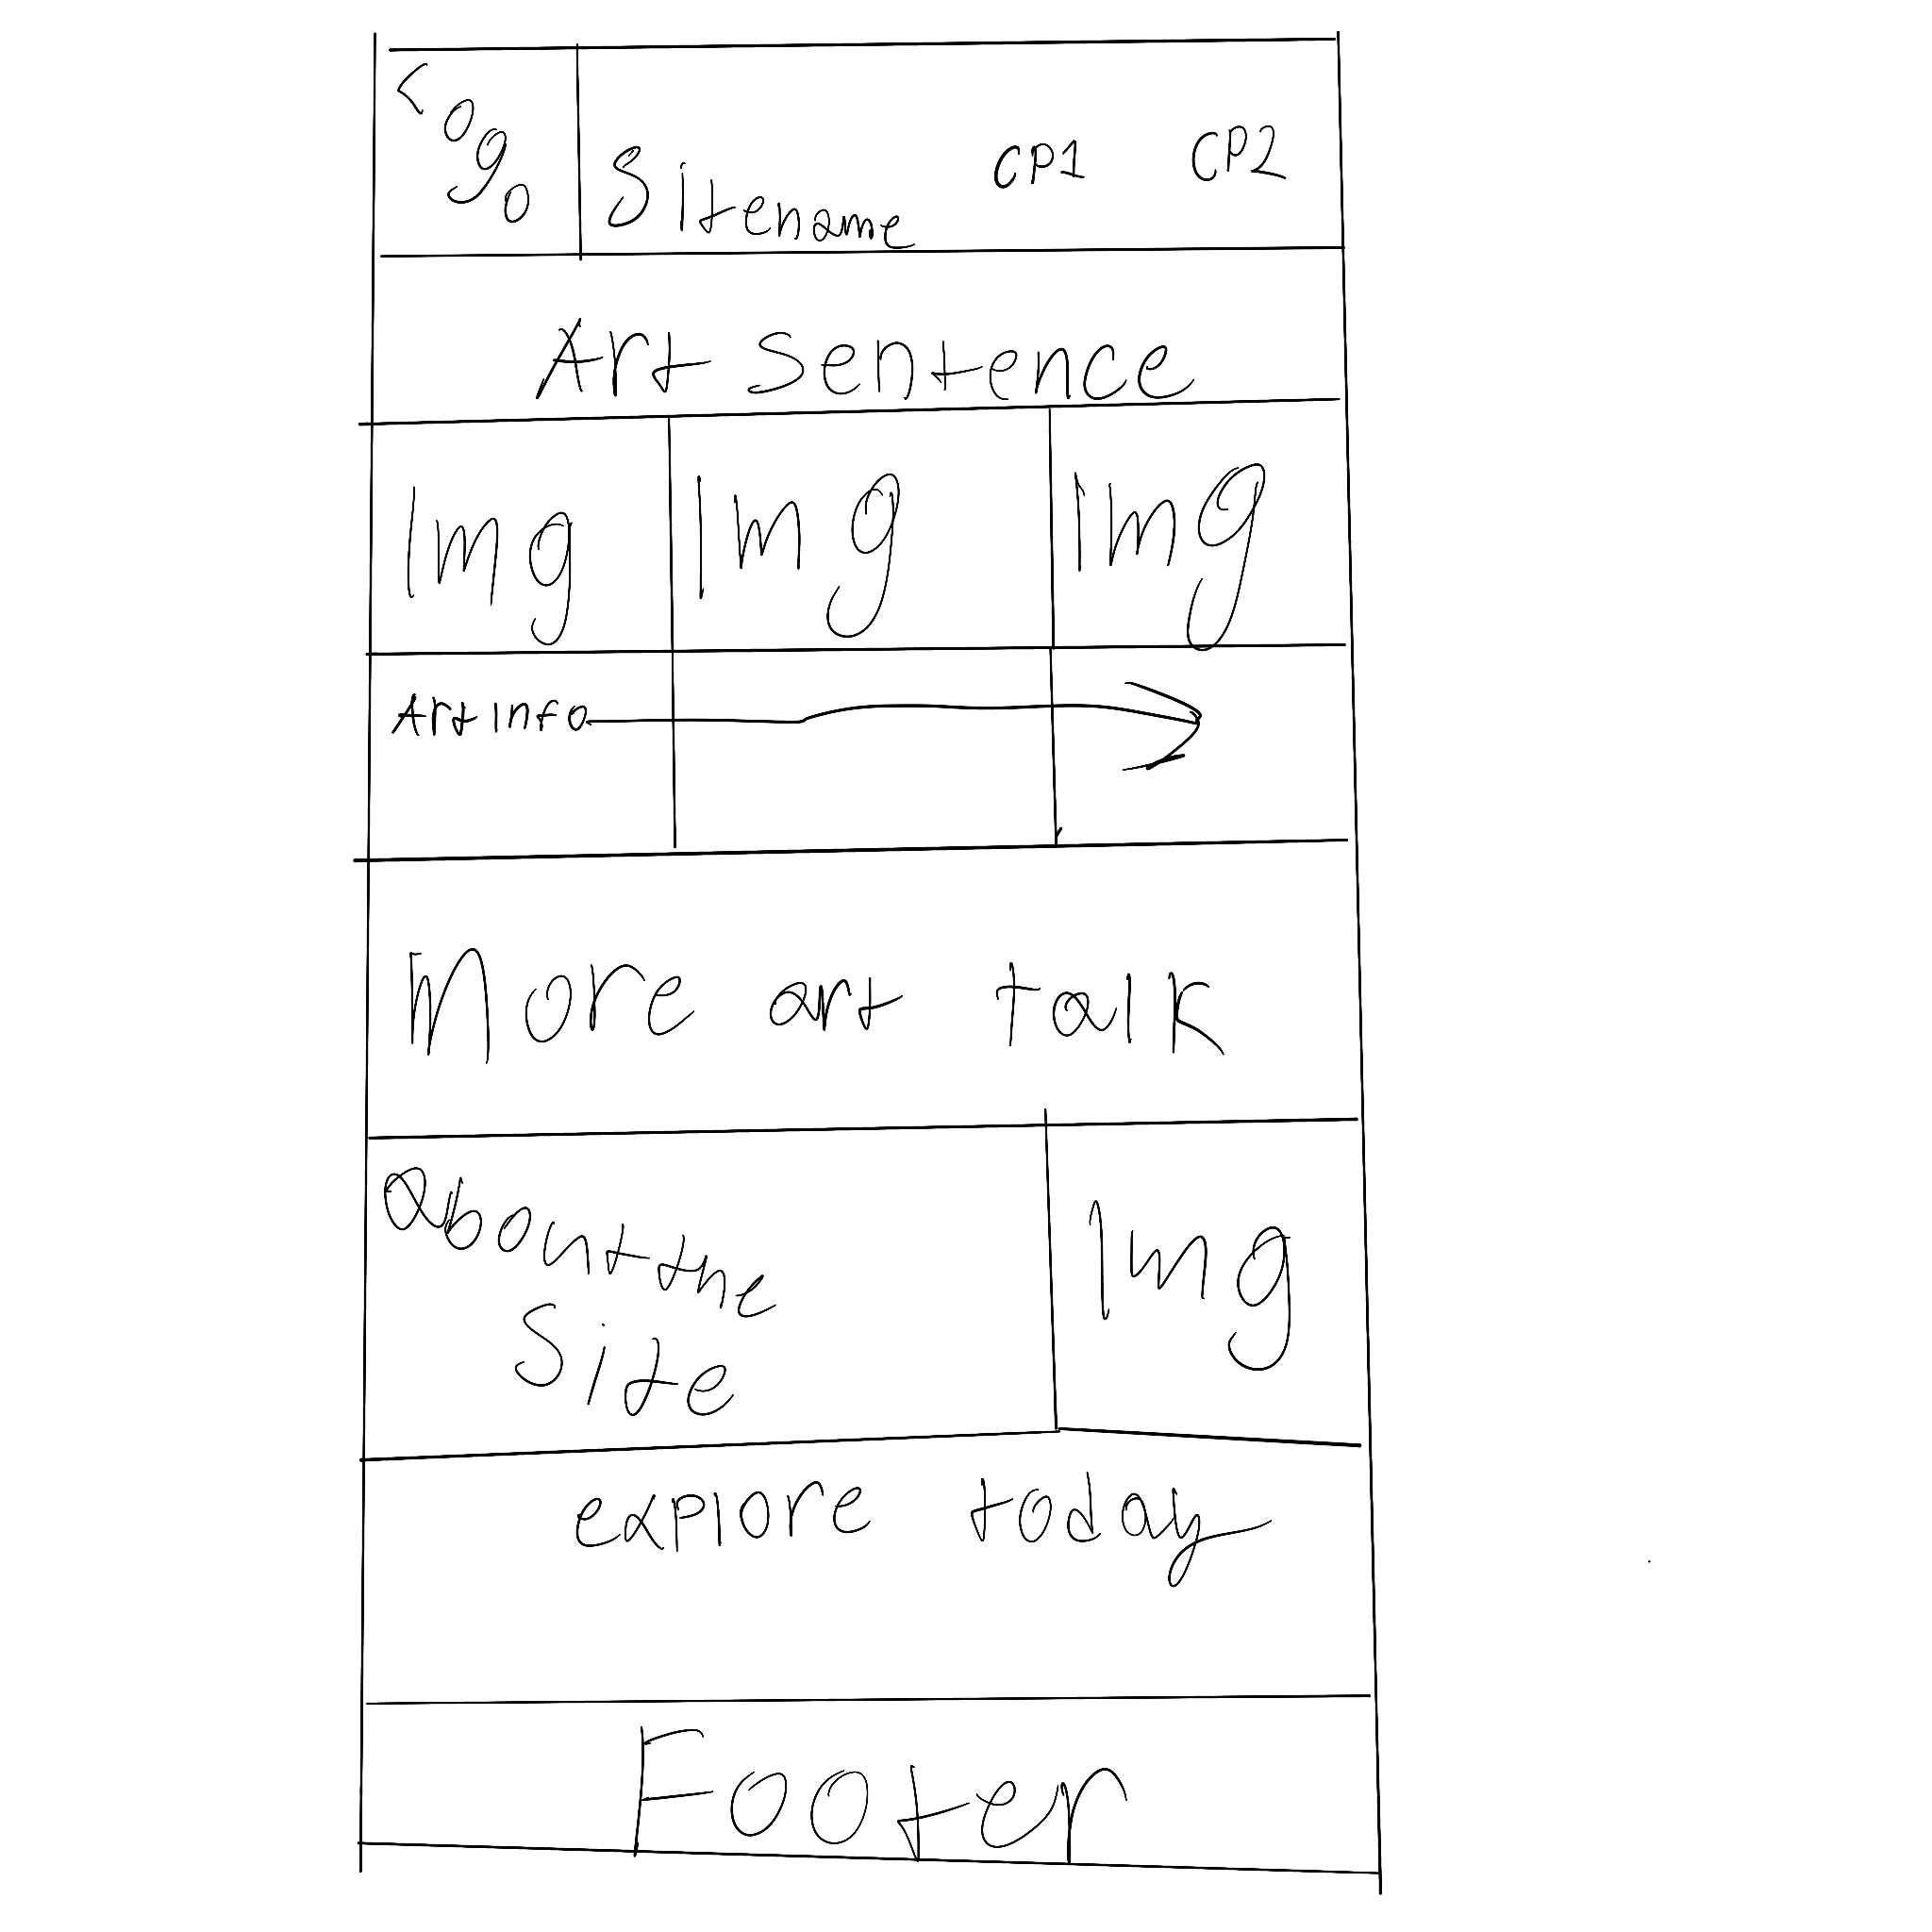 Logo
Sitename CP1 CP2
Art Sentence
Img Img Img
Art Info
More art talk
about the
Site
Img
explore today
Footer